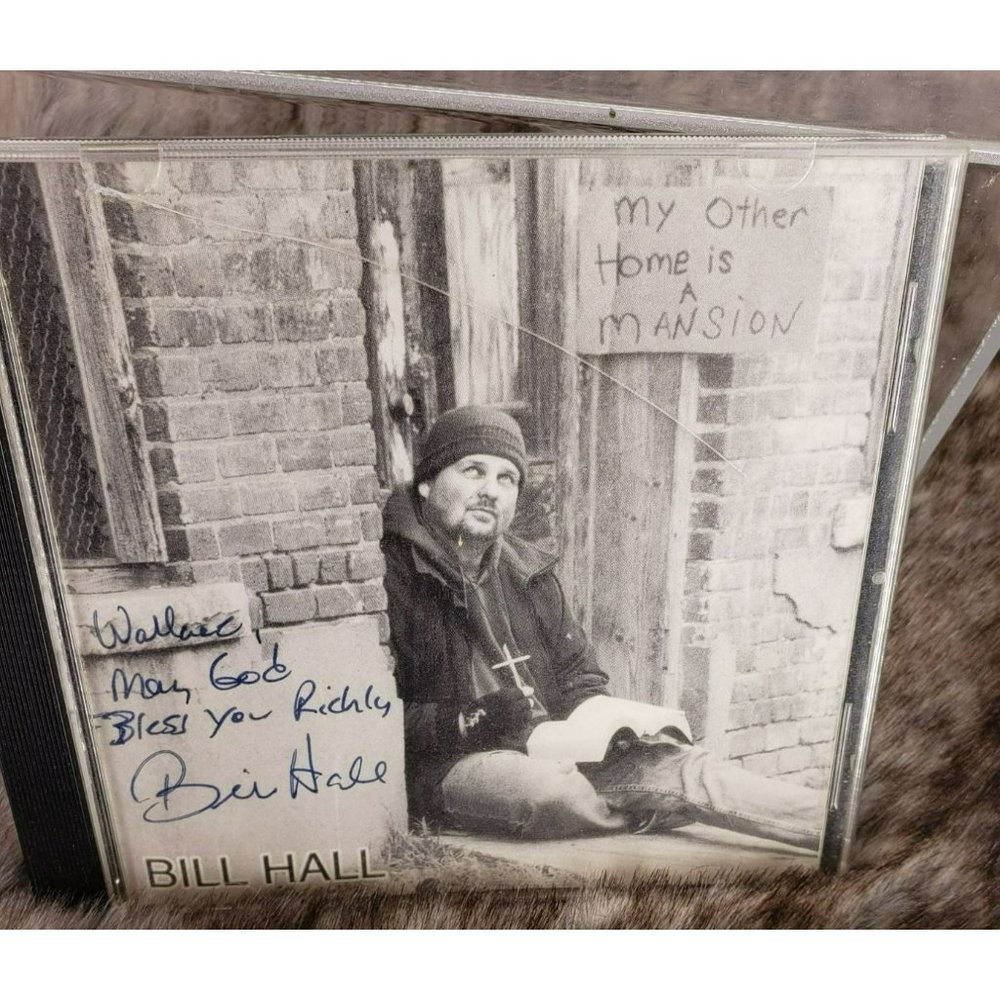 My Other
Home is
A
MANSION
Wallace,
May God
Bless You Richly
Bill Hall
BILL HALL